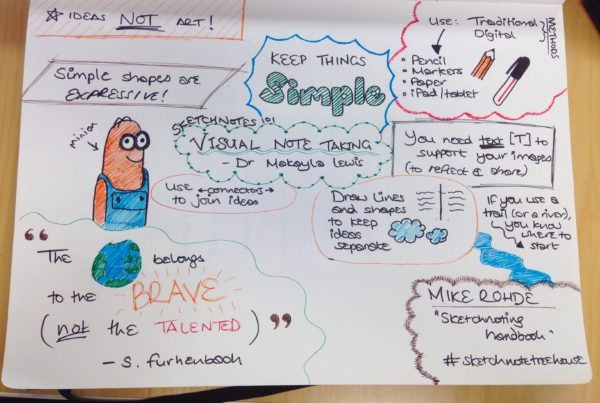 ☆ IDEAS NOT ART!
Simple shapes are
EXPRESSIVE!
KEEP THINGS
Simple
USE: Traditional
Digital
METHODS
• Pencil
• Markers
• Paper
• iPad/tablet
minion
SKETCHNOTES 101
VISUAL NOTE TAKING
- Dr Makayla Lewis
You need text [T] to
support your images
(to reflect & share)
USE connectors
to join ideas
Draw lines
and shapes
to keep
ideas
separate
If you use a
trail (or a river),
you know
where to
start
"The belongs
to the BRAVE
(not the TALENTED)"
- S. Furhenbach
MIKE ROHDE
"Sketchnoting
handbook"
#sketchnotetreehouse